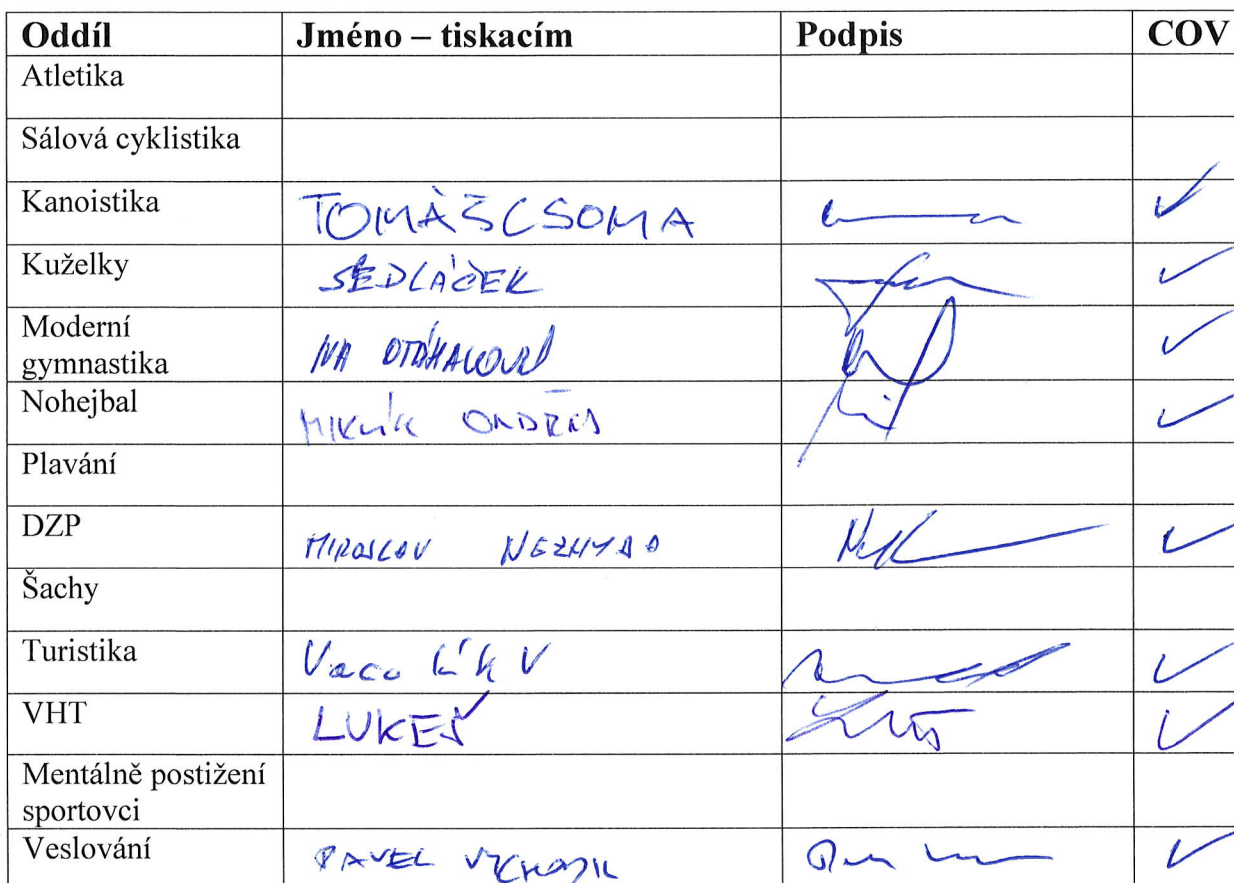 Oddíl Jméno – tiskacím Podpis COV
Atletika
Sálová cyklistika
Kanoistika TOMÁŠ CSOMA ✓
Kuželky SEDLÁČEK ✓
Moderní
gymnastika IVA OTÁHALOVÁ ✓
Nohejbal MIKLÍK ONDŘEJ ✓
Plavání
DZP MIROSLAV ✓
Šachy
Turistika V ✓
VHT LUKEŠ ✓
Mentálně postižení
sportovci
Veslování PAVEL ✓